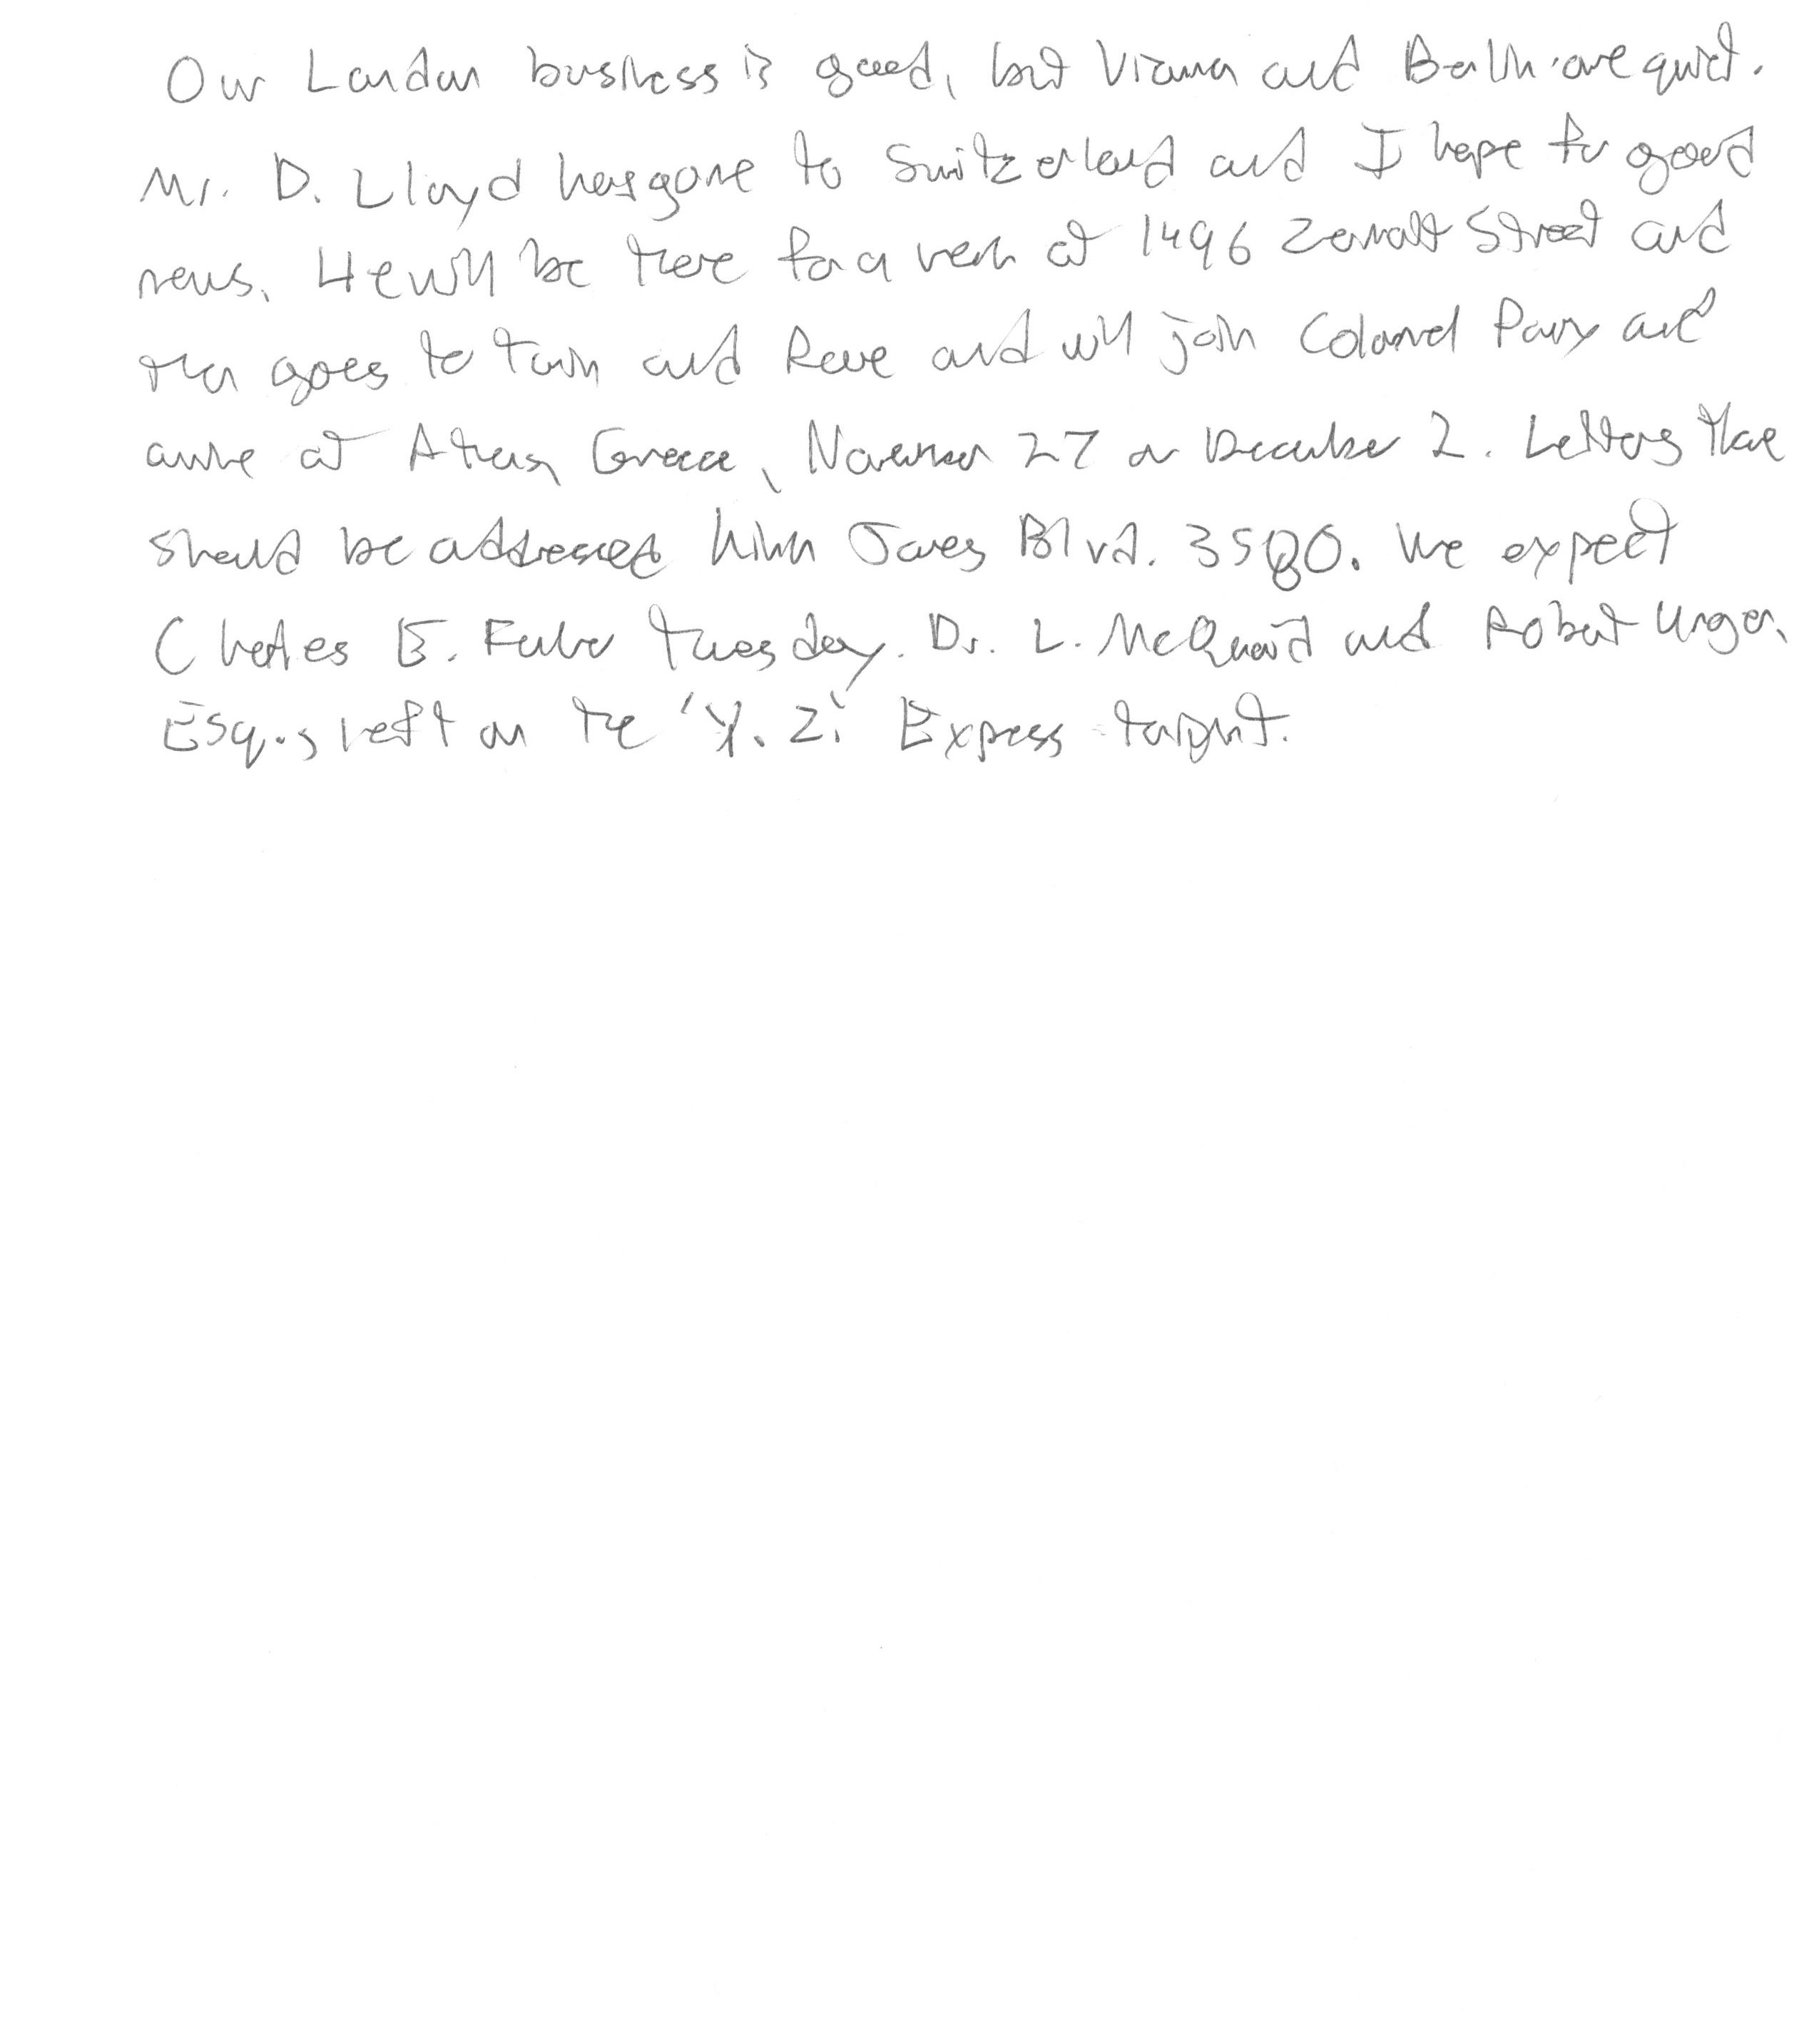 Our London business is good, but Vienna and Berlin are quiet.
Mr. D. Lloyd has gone to Switzerland and I hope for good
news. He will be there for a week at 1496 Zermatt Street and
then goes to Turin and Rome and will join Colonel Parry and
arrive at Athens, Greece, November 27 or December 2. Letters there
should be addressed King James Blvd. 3580. We expect
Charles E. Fuller Tuesday. Dr. L. McQuaid and Robert Unger,
Esq., left on the 'Y. Z.' Express tonight.